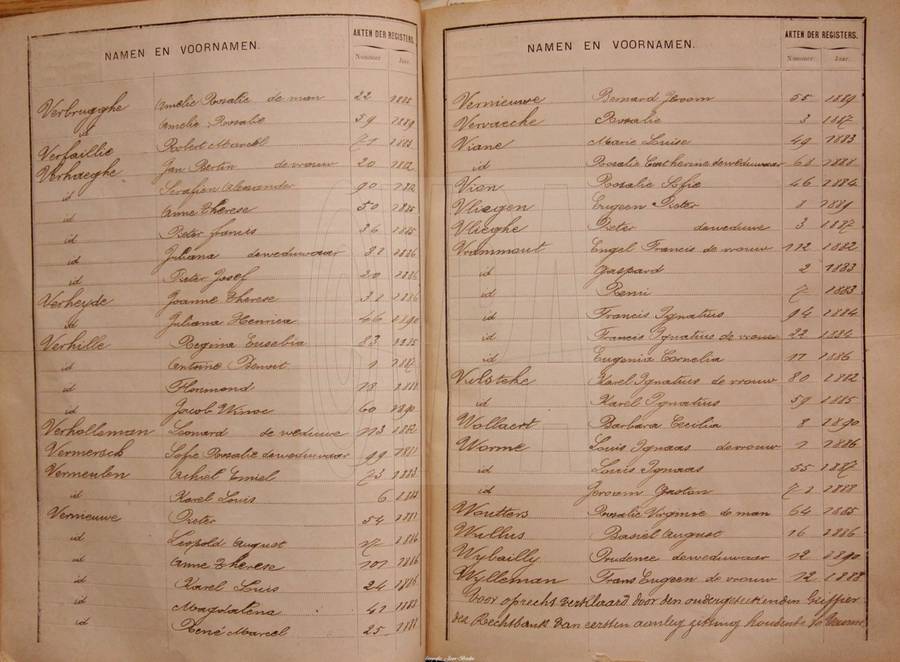 NAMEN EN VOORNAMEN.
AKTEN DER REGISTERS.
Nommer Jaar.
Verbrugghe Amelie Rosalie de man 22
id Amelie Rosalie 59 1889
Verfaillie Robert Marcel 71
Verhaeghe Jan Bertin de vrouw 20 1882
id Serafien Alexander 90
id Anne Therese 50 1885
id Pieter francis 36 1885
id Juliana deweduwaar 1886
id Pieter Josef 20 1886
Verheyde Joanne Therese 1886
id Juliana Henrica 46 1890
Verhille Regina Eusebia 83
id Antoine Benoit 1 1887
id Florimond 1888
id Jacob Winoc 60 1890
Verholleman Leonard de weduwe 113 1882
Vermersch Sofie Rosalie deweduwaar 99
Vermeulen Achiel Emiel 73 1883
id Karel Louis 6
Vernieuwe Pieter 54
id Leopold August 17 1886
id Anne Therese 101 1886
id Karel Louis 24 1886
id Magdalena
id René Marcel 25
NAMEN EN VOORNAMEN.
AKTEN DER REGISTERS.
Nommer Jaar.
Vernieuwe Bernard Jeroom 55 1889
Vervaecke Rosalie 3 1887
Viane Marie Louise 49 1883
id Rosalie Catherine deweduwaar 1888
Vien Rosalie Sofie 46 1884
Vliegen Eugeen Pieter 8 1889
Vlieghe Pieter deweduwe 3 1887
Vrammout Engel Francis de vrouw 112 1882
id Gaspard 2 1883
id Remi 7 1883
id Francis Ignatius 94 1884
id Francis Ignatius de vrouw 22 1884
id Eugenia Cornelia 11 1886
Vulsteke Karel Ignatius de vrouw 80 1882
id Karel Ignatius 59 1885
Wollaert Barbara Cecilia 8 1890
Worme Louis Ignaas devrouw 1 1886
id Louis Ignaas 55 1887
id Jeroom Gaston 1888
Woutters Rosalie Virginie de man 64 1885
Wullus Basiel August 16 1886
Wybailly Prudence deweduwaar 12 1890
Wylleman Frans Eugeen de vrouw 12 1888
Voor oprecht verklaard door den ondergeteekenden Griffier
der Rechtbank van eersten aanleg zitting houdende te Veurne